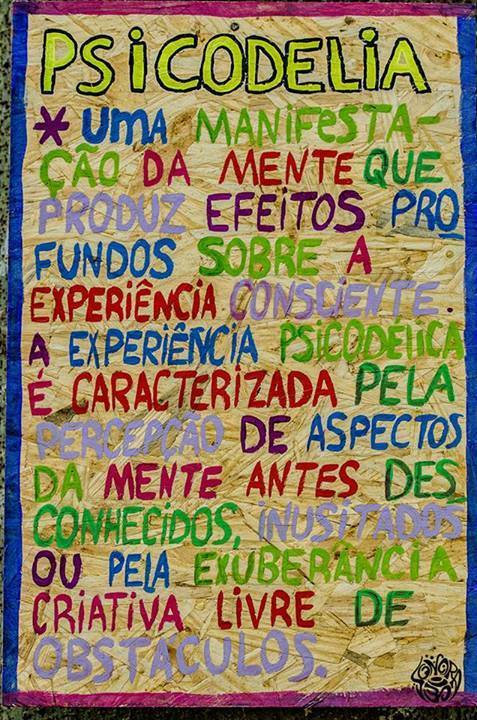 PSICODELIA
* UMA MANIFESTA-
ÇÃO DA MENTE QUE
PRODUZ EFEITOS PRO
FUNDOS SOBRE A
EXPERIÊNCIA CONSCIENTE.
A EXPERIÊNCIA PSICODÉLICA
É CARACTERIZADA PELA
PERCEPÇÃO DE ASPECTOS
DA MENTE ANTES DES
CONHECIDOS, INUSITADOS
OU PELA EXUBERÂNCIA
CRIATIVA LIVRE DE
OBSTÁCULOS.